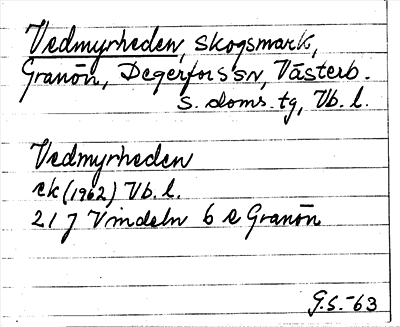 Vedmyrheden, skogsmark,
Granön, Degerfors sn, Västerb.
s. doms. tg, Vb. l.
Vedmyrheden
ek (1962) Vb. l.
21 J Vindeln 6 e Granön
G.S.-63